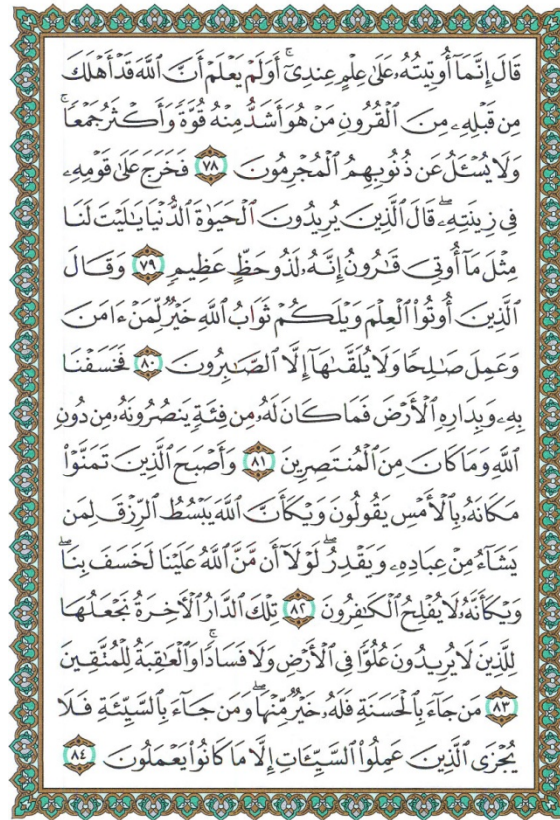 قَالَ إِنَّمَآ أُوتِيتُهُۥ عَلَىٰ عِلْمٍ عِندِىٓ ۚ أَوَلَمْ يَعْلَمْ أَنَّ ٱللَّهَ قَدْ أَهْلَكَ
مِن قَبْلِهِۦ مِنَ ٱلْقُرُونِ مَنْ هُوَ أَشَدُّ مِنْهُ قُوَّةً وَأَكْثَرُ جَمْعًا ۚ
وَلَا يُسْـَٔلُ عَن ذُنُوبِهِمُ ٱلْمُجْرِمُونَ ٧٨ فَخَرَجَ عَلَىٰ قَوْمِهِۦ
فِى زِينَتِهِۦ ۖ قَالَ ٱلَّذِينَ يُرِيدُونَ ٱلْحَيَوٰةَ ٱلدُّنْيَا يَٰلَيْتَ لَنَا
مِثْلَ مَآ أُوتِىَ قَٰرُونُ إِنَّهُۥ لَذُو حَظٍّ عَظِيمٍ ٧٩ وَقَالَ
ٱلَّذِينَ أُوتُوا۟ ٱلْعِلْمَ وَيْلَكُمْ ثَوَابُ ٱللَّهِ خَيْرٌ لِّمَنْ ءَامَنَ
وَعَمِلَ صَٰلِحًا وَلَا يُلَقَّىٰهَآ إِلَّا ٱلصَّٰبِرُونَ ٨٠ فَخَسَفْنَا
بِهِۦ وَبِدَارِهِ ٱلْأَرْضَ فَمَا كَانَ لَهُۥ مِن فِئَةٍ يَنصُرُونَهُۥ مِن دُونِ
ٱللَّهِ وَمَا كَانَ مِنَ ٱلْمُنتَصِرِينَ ٨١ وَأَصْبَحَ ٱلَّذِينَ تَمَنَّوْا۟
مَكَانَهُۥ بِٱلْأَمْسِ يَقُولُونَ وَيْكَأَنَّ ٱللَّهَ يَبْسُطُ ٱلرِّزْقَ لِمَن
يَشَآءُ مِنْ عِبَادِهِۦ وَيَقْدِرُ ۖ لَوْلَآ أَن مَّنَّ ٱللَّهُ عَلَيْنَا لَخَسَفَ بِنَا ۖ
وَيْكَأَنَّهُۥ لَا يُفْلِحُ ٱلْكَٰفِرُونَ ٨٢ تِلْكَ ٱلدَّارُ ٱلْءَاخِرَةُ نَجْعَلُهَا
لِلَّذِينَ لَا يُرِيدُونَ عُلُوًّا فِى ٱلْأَرْضِ وَلَا فَسَادًا ۚ وَٱلْعَٰقِبَةُ لِلْمُتَّقِينَ
٨٣ مَن جَآءَ بِٱلْحَسَنَةِ فَلَهُۥ خَيْرٌ مِّنْهَا ۖ وَمَن جَآءَ بِٱلسَّيِّئَةِ فَلَا
يُجْزَى ٱلَّذِينَ عَمِلُوا۟ ٱلسَّيِّـَٔاتِ إِلَّا مَا كَانُوا۟ يَعْمَلُونَ ٨٤